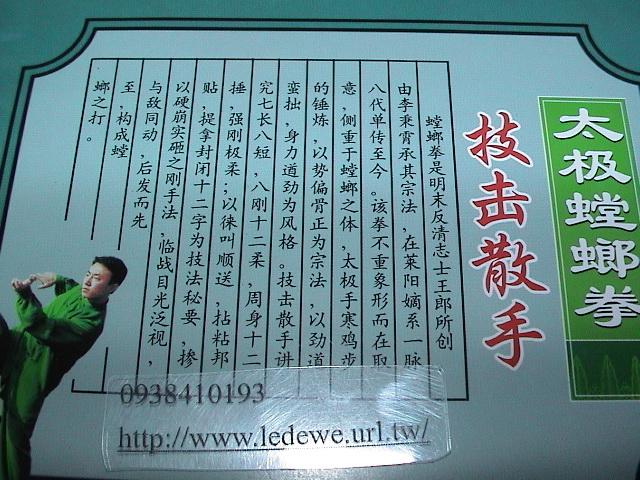 太极螳螂拳
技击散手
螳螂拳是明末反清志士王郎所创
由李秉霄承其宗法，在莱阳嫡系一脉
八代单传至今。该拳不重象形而在取
意，侧重于螳螂之体，太极手寒鸡步
的锤炼，以势偏骨正为宗法，以劲道
蛮拙，身力道劲为风格。技击散手讲
究七长八短，八刚十二柔，周身十二
捶，强刚极柔；以徕叫顺送，拈粘邦
贴，提拿封闭十二字为技法秘要，掺
以硬崩实砸之刚手法，临战目光泛视，
与敌同动，后发而先
至，构成螳
螂之打。
0938410193
http://www.ledewe.url.tw/